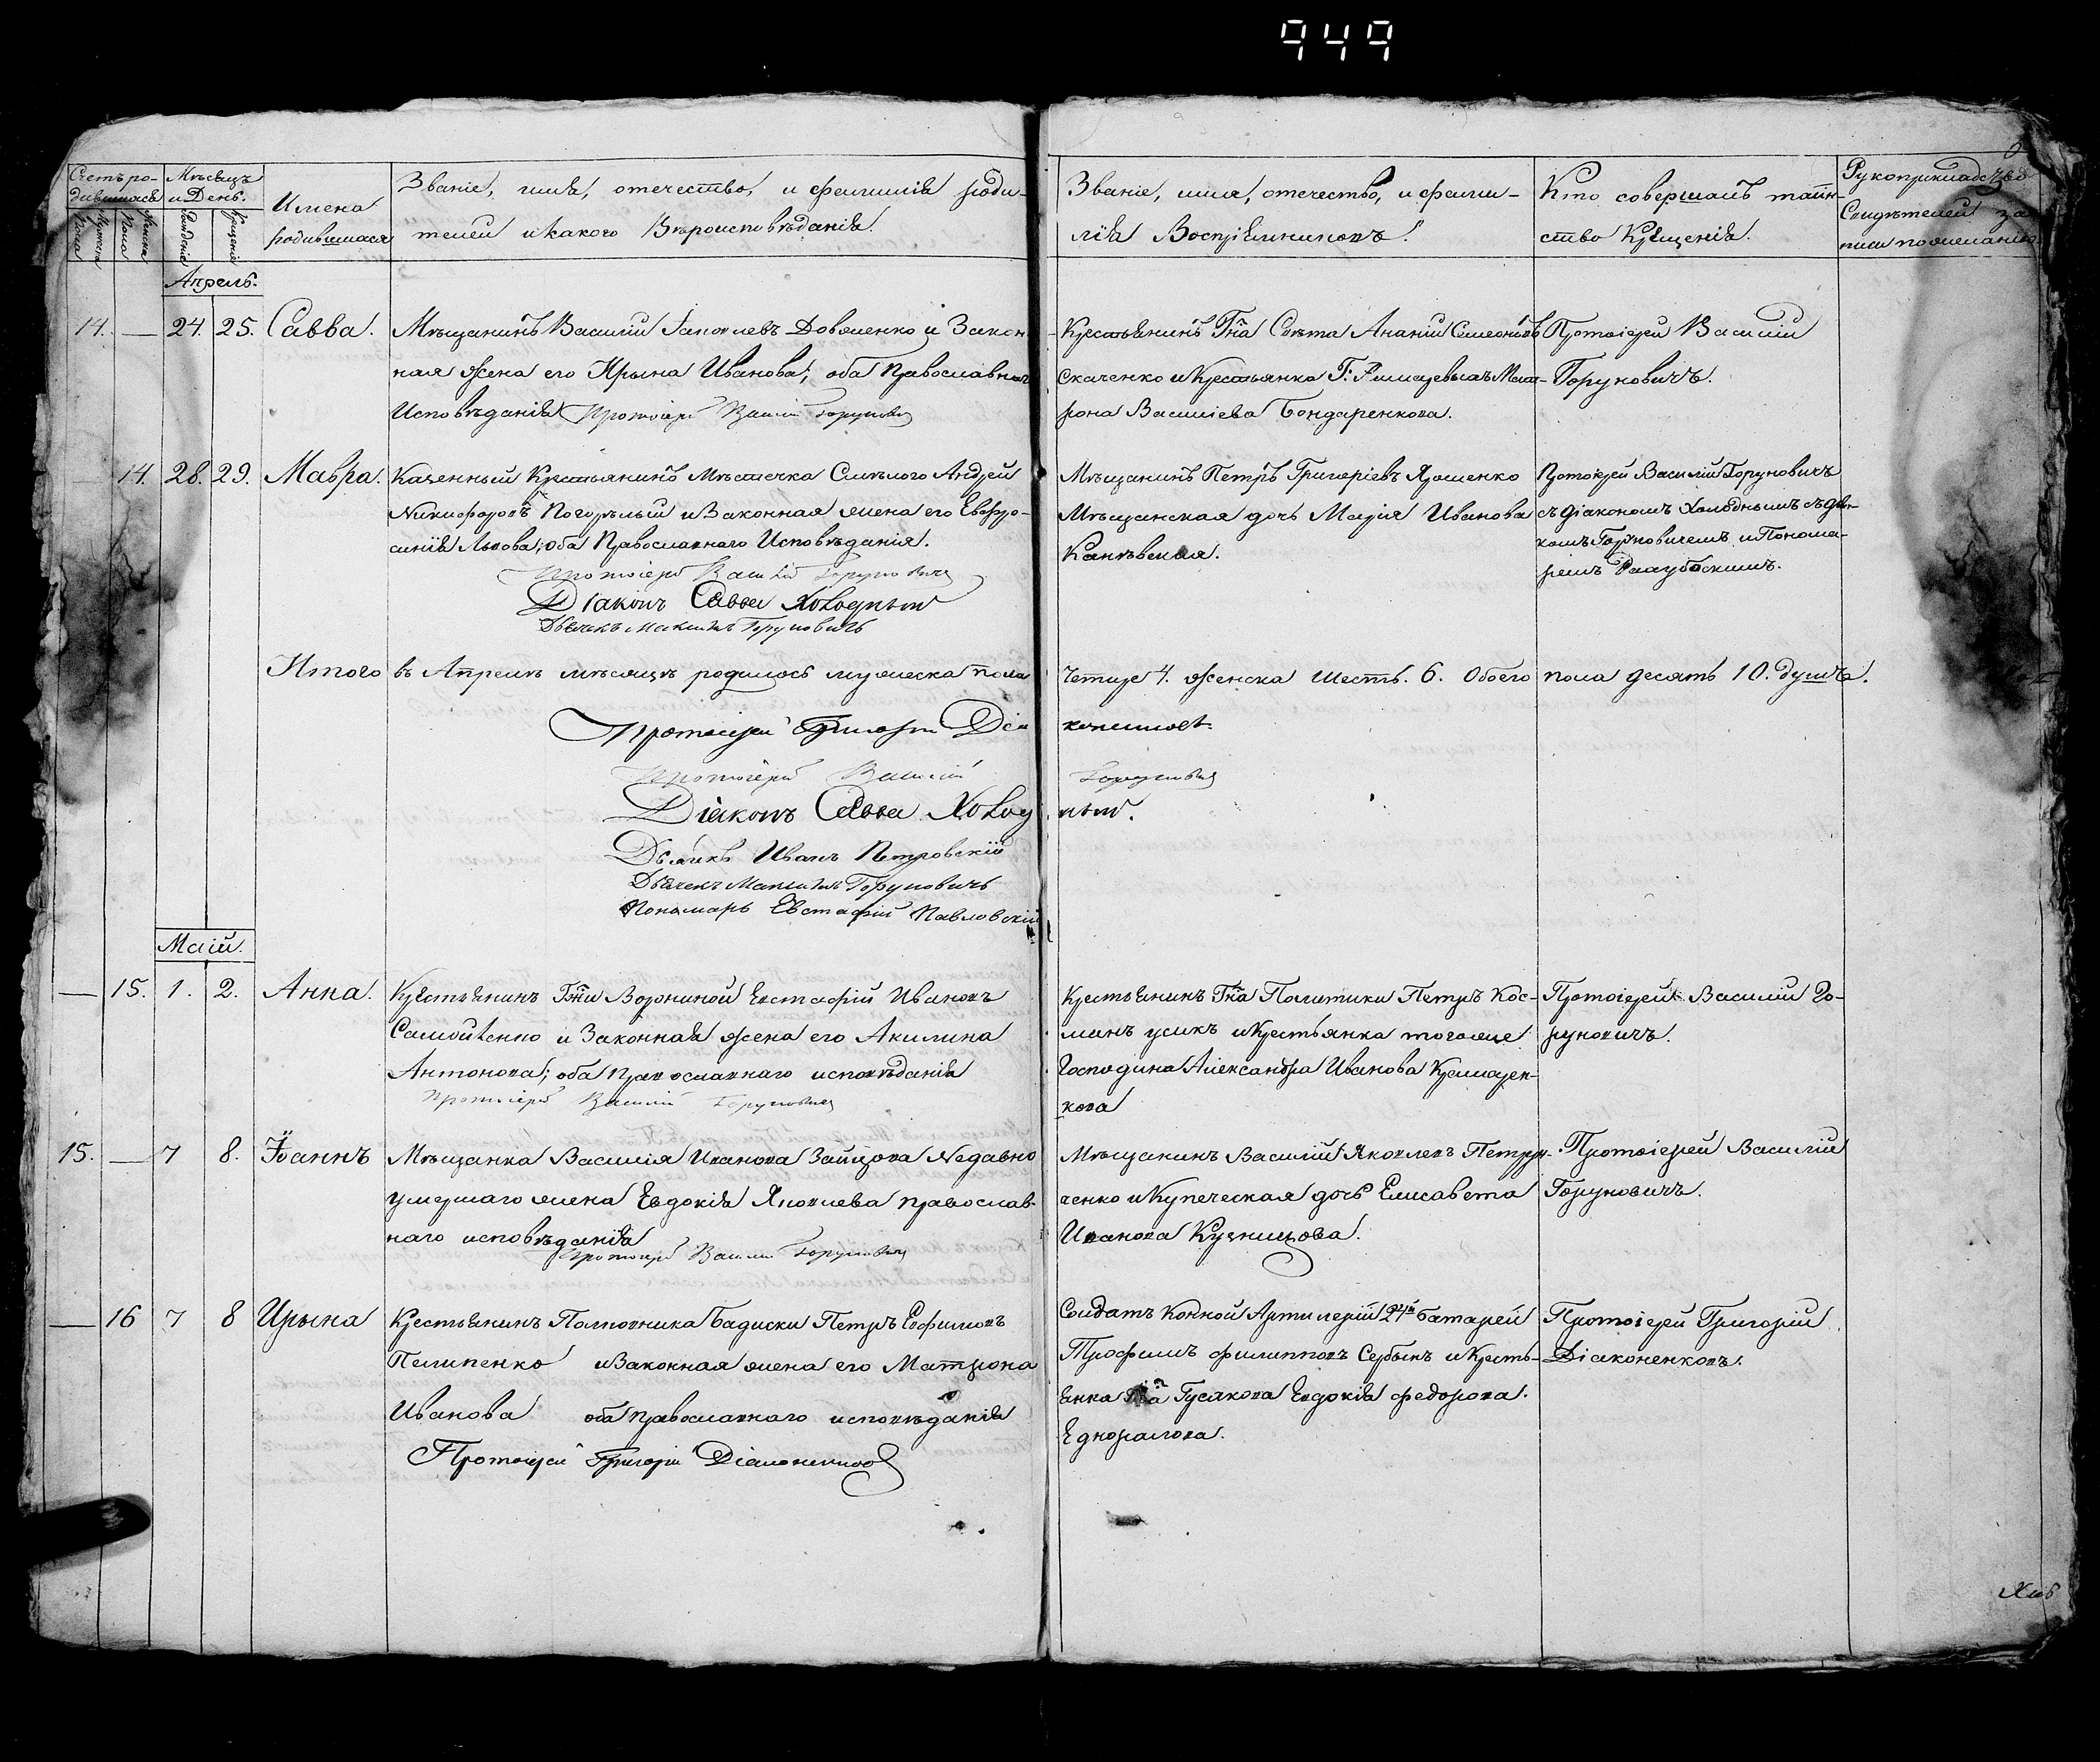 949
Счетъ ро-
дившихся
Мѣсяцъ
и День.
Мужеска
Пола
Женска
Пола
Рожденiе
Крещенiе
Имена
родившихся
Званiе, имя, отечество, и фамилiя роди-
телей и какого Вѣроисповѣданiя.
Званiе, имя, отечество, и фами-
лiя Воспрiемниковъ.
Кто совершалъ таин-
ство Крещенiя.
Рукоприкладство
Свидѣтелей за
писи по желанiю
Апрель.
14. — 24. 25. Савва.
Мѣщанинъ Василiй Яковлевъ Довженко и Закон
ная жена его Ирына Иванова, оба Православнаго
Исповѣданiя Протоiерей Василiй Горуновичъ
Крестьянинъ Гна Свѣта Ананiй Симеоновъ
Скаченко и Крестьянка Г: Мат-
рона Василiева Бондаренкова.
Протоiерей Василiй
Горуновичъ.
14. 28. 29. Мавра.
Казенный Крестьянинъ Мѣстечка Смѣлого Андрей
Никифоровъ Погорѣлый и Законная жена его Евфро-
синiя Львова; оба Православнаго Исповѣданiя.
Протоiерей Василiй Горуновичъ
Дiаконъ Савва Холодный
Дьячекъ Максимъ Горуновичъ
Мѣщанинъ Петръ Григорiевъ Ярошенко
Мѣщанская дочь Марiя Иванова
Каневская.
Протоiерей Василiй Горуновичъ
съ дiакономъ Холоднымъ съ дьяч-
комъ Горуновичемъ и Понома-
ремъ
Итого въ Апрелѣ мѣсяцѣ родилось мужеска пола
Четире 4. женска шесть. 6. Обоего пола десять 10. душъ.
Протоiерей Григорiй Дiа
коненковъ.
Протоiерей Василiй
Горуновичъ
Дiаконъ Савва Холод
ный.
Дьячикъ Иванъ Петровскiй
Дьячекъ Максимъ Горуновичъ
Пономарь Евстафiй Павловскiй
Маiй.
— 15. 1. 2. Анна.
Крестьянинъ Гжи Ворониной Евстафiй Ивановъ
Самойленко и Законная жена его Акилина
Антонова; оба православнаго исповѣданiя
Протоiерей Василiй Горуновичъ
Крестьянинъ Гна Политики Петръ Кос-
минъ усикъ и Крестьянка тогоже
Господина Александра Иванова Крамарен-
кова
Протоiерей Василiй Го-
руновичъ.
15. — 7 8. Iоаннъ
Мѣщанка Василiя Иванова Зайцова недавно
умершаго жена Евдокiя Яковлева православ-
наго исповѣданiя
Протоiерей Василiй Горуновичъ
Мѣщанинъ Василiй Яковлевъ Петру-
ченко и Купеческая дочь Елисавета
Иванова Кузнецова.
Протоiерей Василiй
Горуновичъ.
— 16 7 8 Ирына
Крестьянинъ Полковника Бадиски Петръ Евфимовъ
Пелипенко и Законная жена его Матрона
Иванова оба православнаго исповѣданiя
Протоiерей Григорiй Дiаконенковъ
Солдатъ Конной Артилерiй 24й батарей
Трофимъ филипповъ Сербынъ и Кресть-
янка Гна Гусакова Евдокiя федорова.
Едноралова.
Протоiерей Григорiй
Дiаконенковъ.